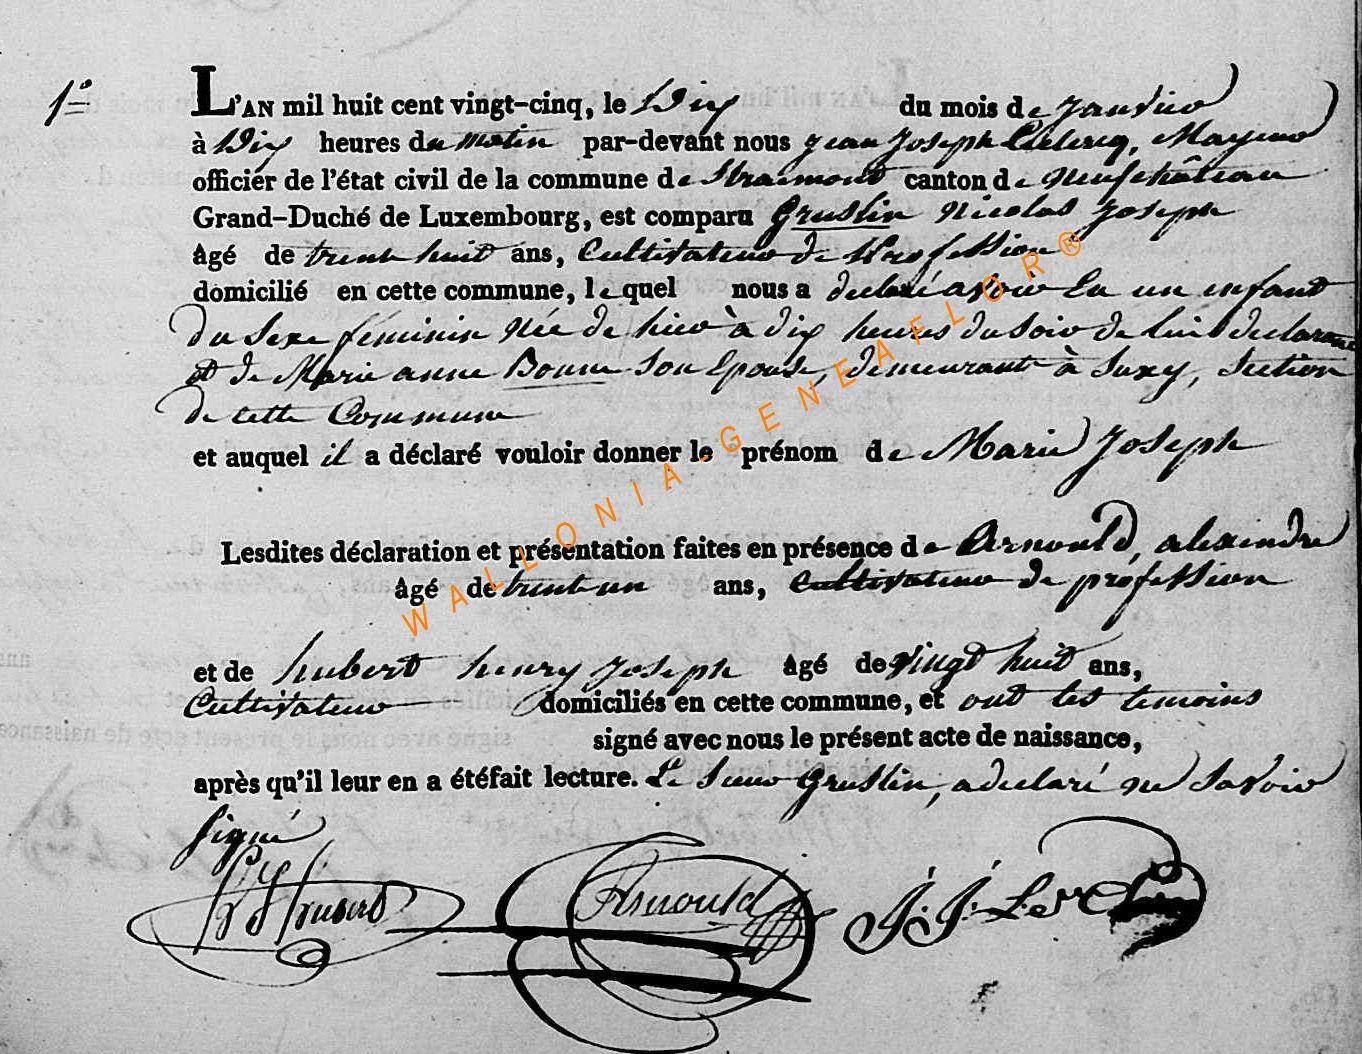 1º
L'AN mil huit cent vingt-cinq, le Dix du mois de Janvier
à Dix heures du matin par-devant nous jean Joseph Leclercq, Mayeur
officier de l'état civil de la commune de Straimont canton de Neufchâteau
Grand-Duché de Luxembourg, est comparu Gruslin Nicolas Joseph
âgé de trente huit ans, Cultivateur de Profession
domicilié en cette commune, lequel nous a declaré avoir Eu un enfant
du Sexe féminin Née de hier à dix heures du Soir de lui declarant
et de Marie anne Bonne Son Epouse, demeurant à Suxy, Section
de cette Commune
et auquel il a déclaré vouloir donner le prénom de Marie Joseph
Lesdites déclaration et présentation faites en présence de Arnould, alexandre
âgé de trente un ans, Cultivateur de profession
et de hubert henry Joseph âgé de vingt huit ans,
Cultivateur domiciliés en cette commune, et ont les temoins
signé avec nous le présent acte de naissance,
après qu'il leur en a été fait lecture. Le Sieur Gruslin, a declaré ne Savoir
Signé
Hubert Arnould J. J. Leclercq
WALLONIA-GENEAFLOR®